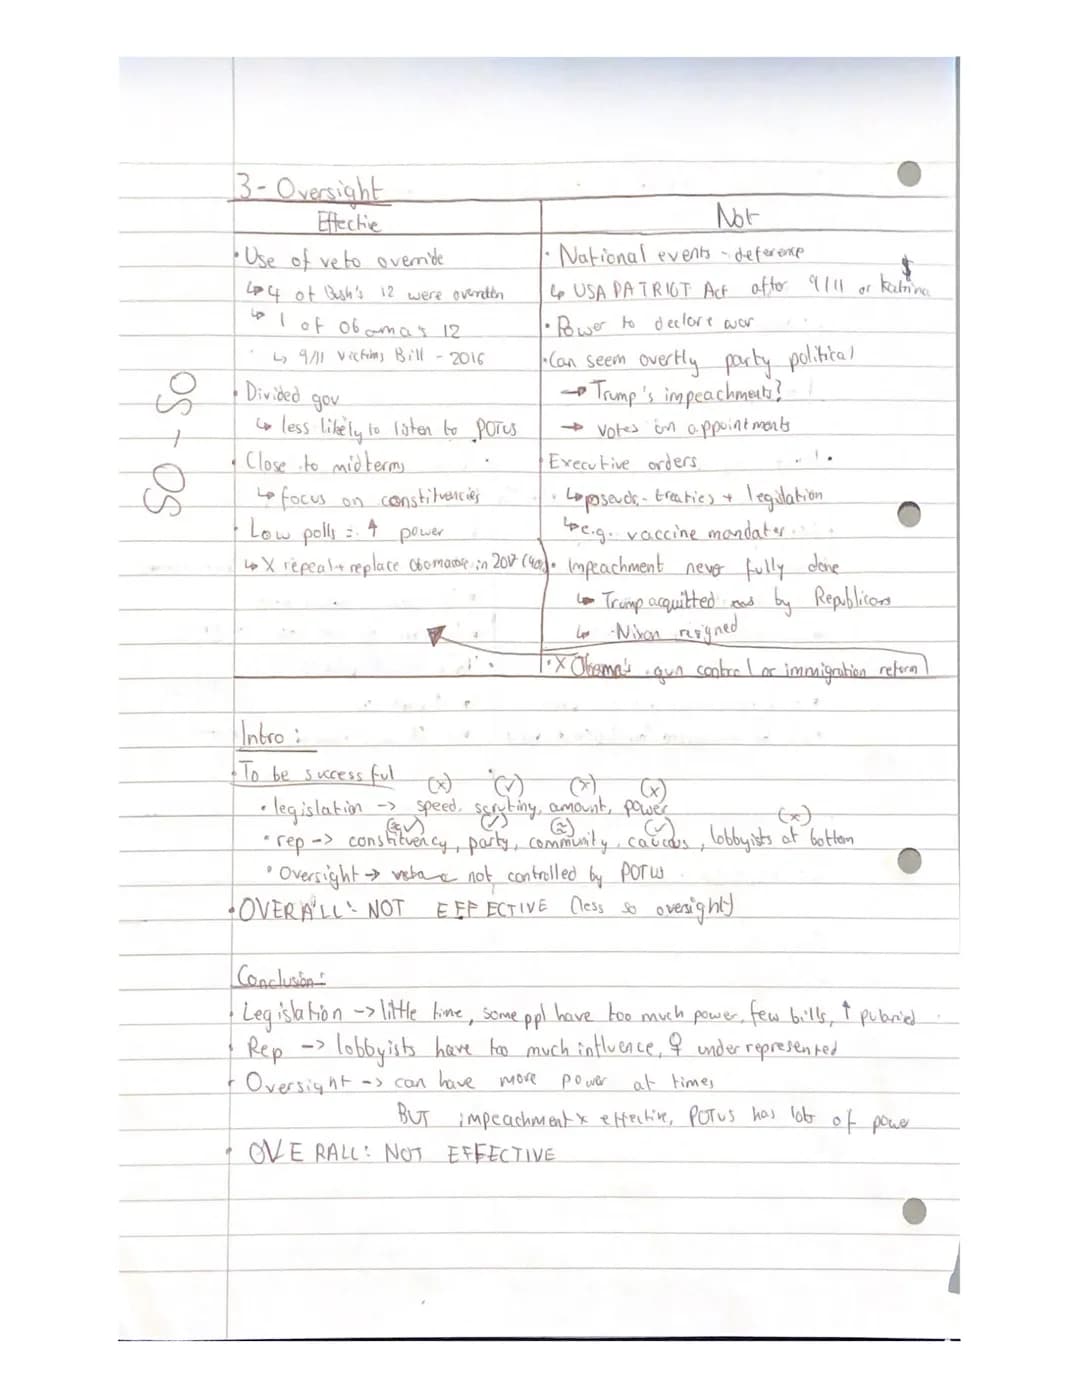 3- Oversight
Effective
• Use of veto override
↳ 4 of Bush's 12 were overridden
↳ 1 of Obama's 12
↳ 9/11 Victims Bill - 2016
• Divided gov
↳ less likely to listen to POTUS
• Close to midterms
↳ focus on constituencies
• Low polls = ↑ power
↳ X repeal + replace Obamacare in 2017
50-50
Not
• National events - deference
$
↳ USA PATRIOT Act after 9/11 or Katrina
• Power to declare war
• Can seem overtly party political
→ Trump's impeachments?
→ votes on appointments
Executive orders
↳ pseudo-treaties + legislation
↳ e.g. vaccine mandates
• Impeachment never fully done
↳ Trump acquitted by Republicans
↳ Nixon resigned
• X Obama's gun control or immigration reform
Intro:
• To be successful
(x) (✓) (x) (x)
• legislation -> speed, scrutiny, amount, power
(≈✓) (✓) (≈) (✓) (x)
• rep -> constituency, party, community, caucus, lobbyists at bottom
• Oversight → not controlled by POTUS
• OVERALL: NOT EFFECTIVE (less so oversight)
Conclusion:
• Legislation -> little time, some ppl have too much power, few bills, ↑
• Rep -> lobbyists have too much influence, ♀ underrepresented
• Oversight -> can have more power at times
BUT impeachment x effective, POTUS has lots of power
• OVERALL: NOT EFFECTIVE